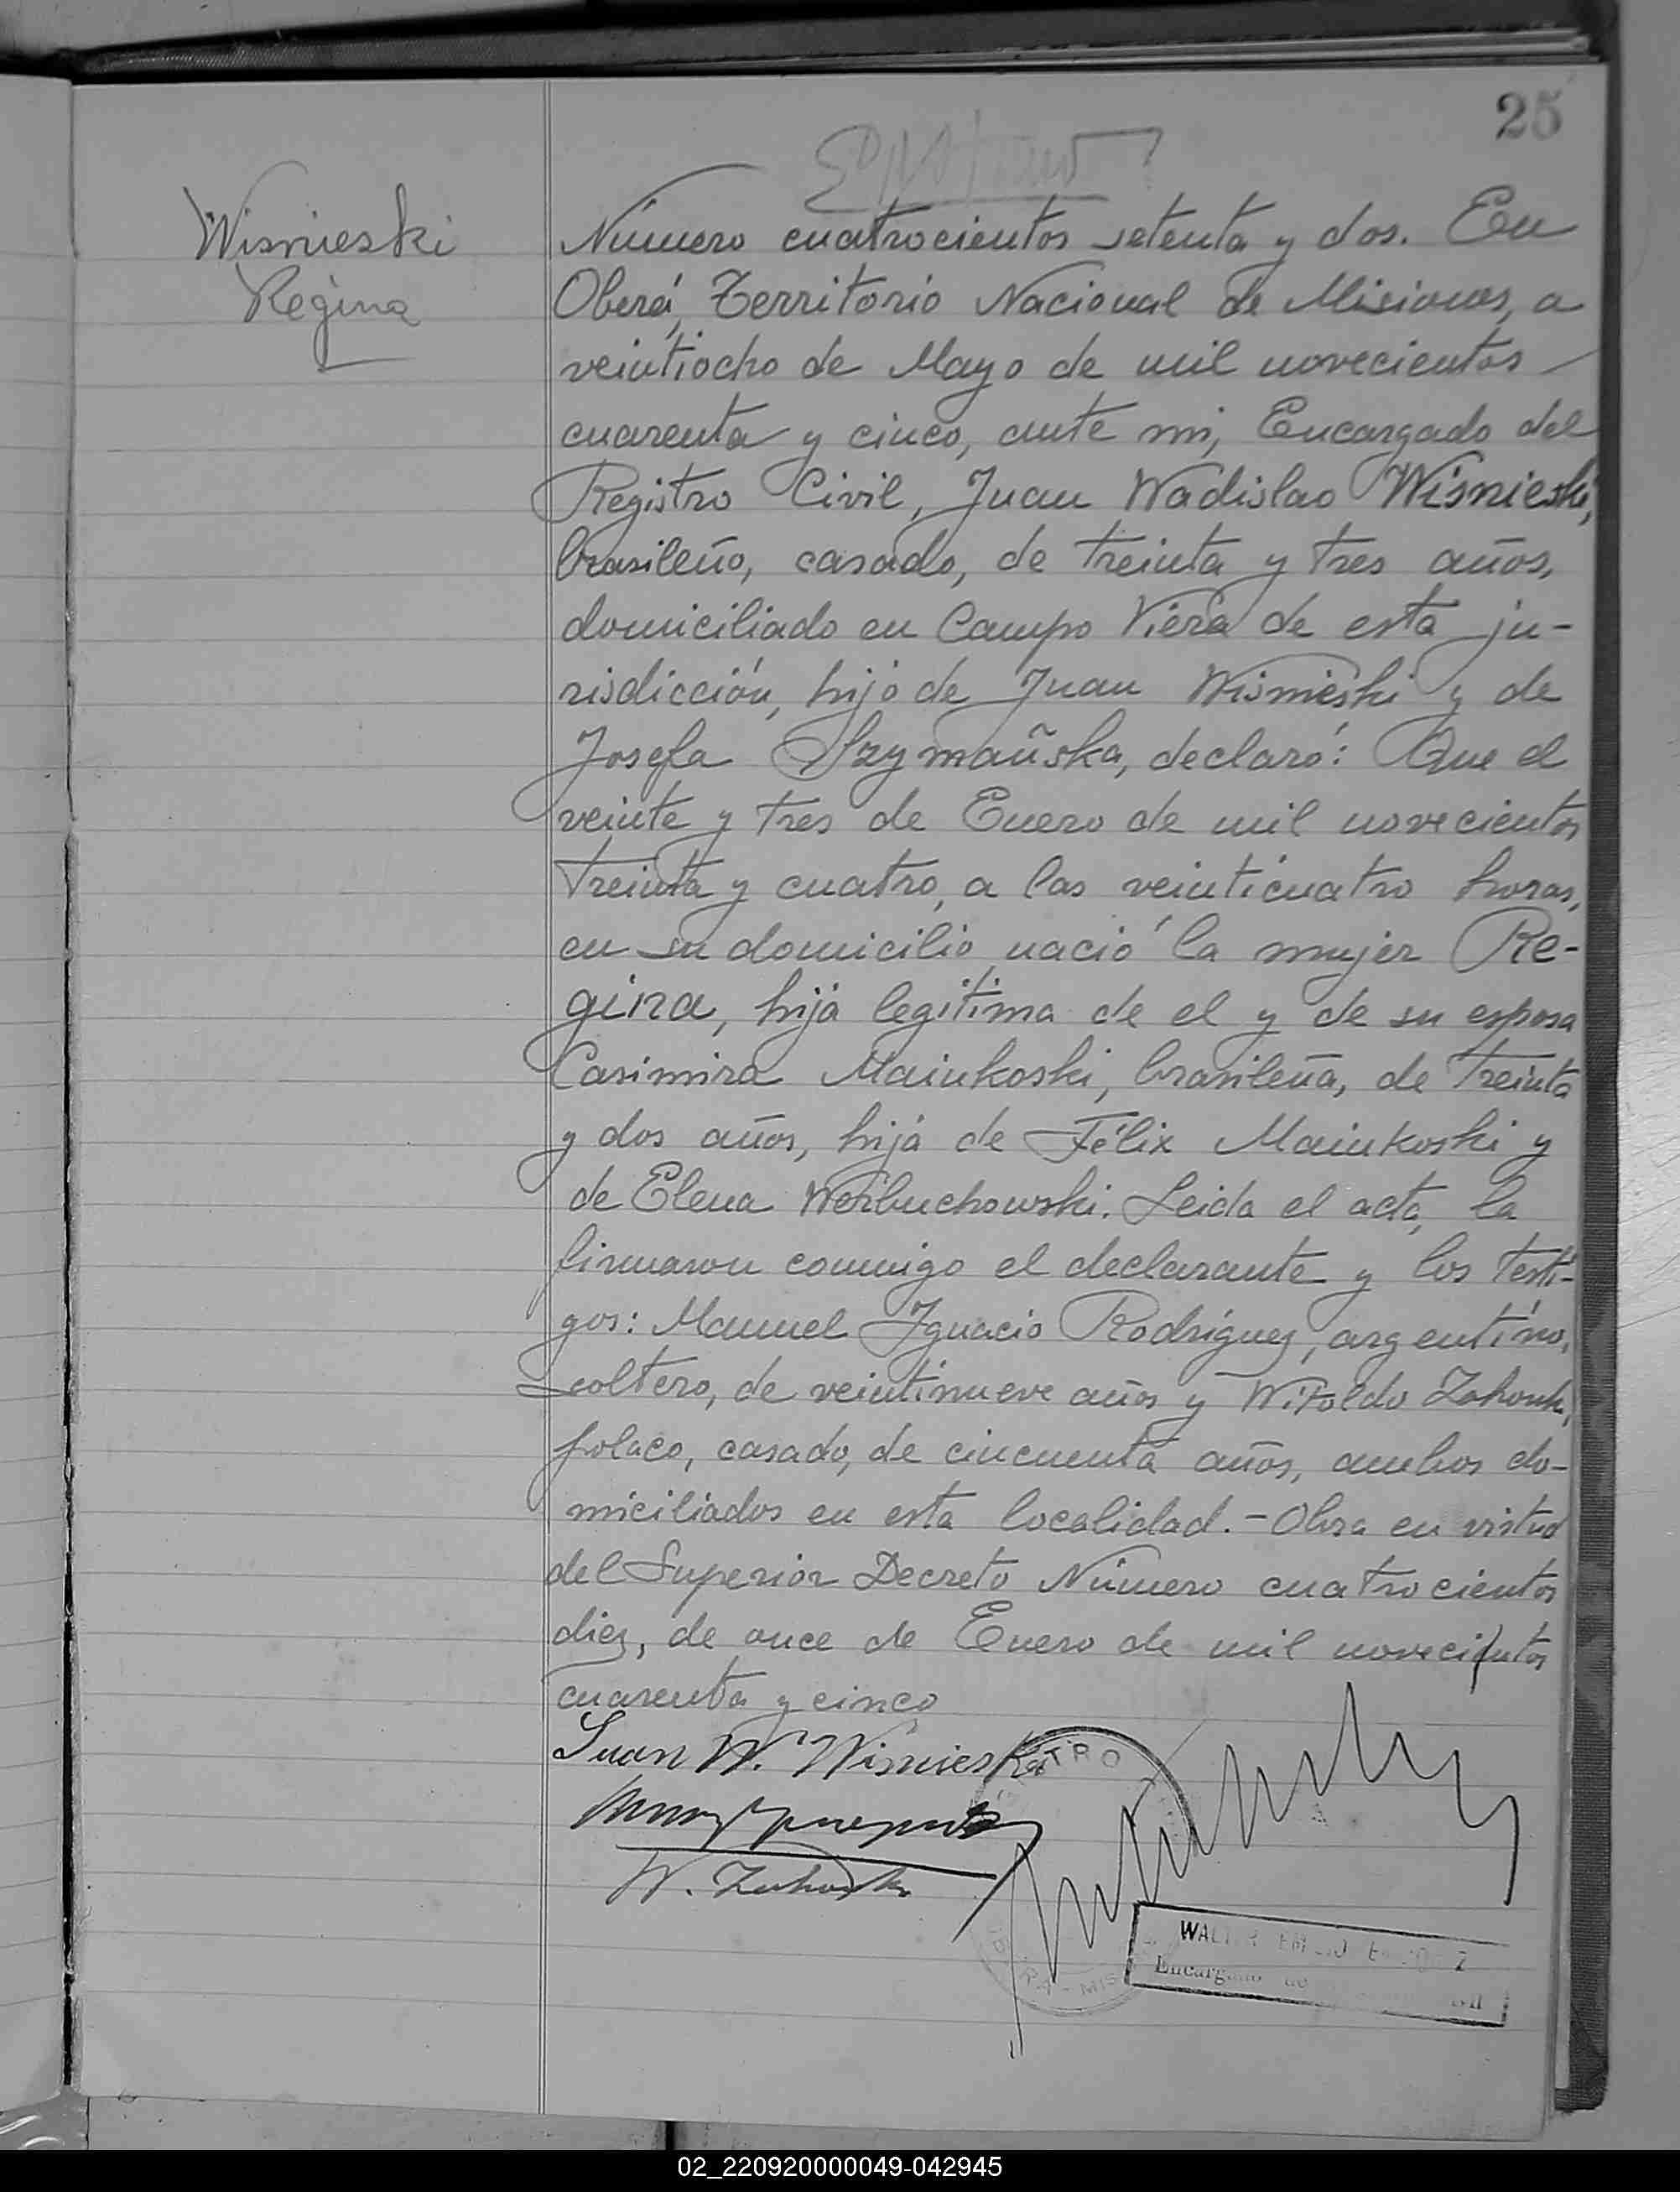 25
Wisnieski
Regina
Número cuatrocientos setenta y dos. En
Oberá, Territorio Nacional de Misiones, a
veintiocho de Mayo de mil novecientos
cuarenta y cinco, ante mi, Encargado del
Registro Civil, Juan Wadislao Wisnieski,
brasileño, casado, de treinta y tres años,
domiciliado en Campo Viera de esta ju-
risdicción, hijo de Juan Wisnieski y de
Josefa Szymañska, declaró: Que el
veinte y tres de Enero de mil novecientos
treinta y cuatro, a las veinticuatro horas,
en su domicilio nació la mujer Re-
gina, hija legitima de el y de su esposa
Casimira Mainkoski, brasileña, de treinta
y dos años, hija de Félix Mainkoski y
de Elena Werbuchowski. Leida el acta, la
firmaron conmigo el declarante y los testi-
gos: Manuel Ignacio Rodríguez, argentino,
soltero, de veintinueve años y Witoldo
polaco, casado, de cincuenta años, ambos do-
miciliados en esta localidad.- Obra en virtud
del Superior Decreto Número cuatrocientos
diez, de once de Enero de mil novecientos
cuarenta y cinco
Juan W. Wisnieski
W.
02_220920000049-042945